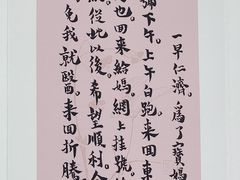 一早仁濟。為了寶媽
下午。上午白跑来回東
也回来給媽網上挂號。
從此以後。希望順利。
我就醫。来回折騰